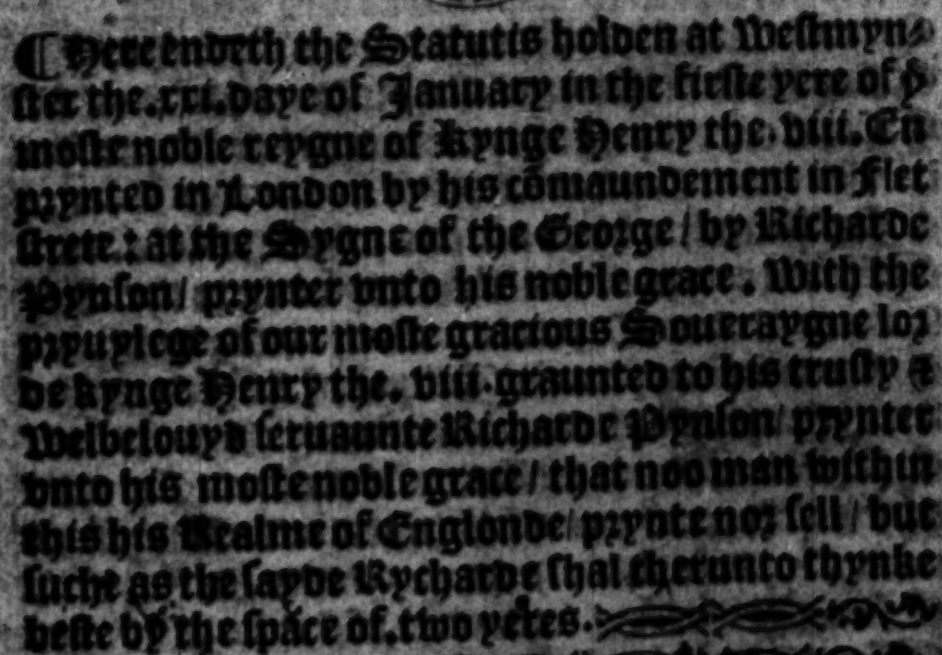 ¶ Here endeth the Statutis holden at Westmyn⸗
ster the .xxi. daye of January in the firste yere of yͤ
moste noble reygne of Kynge Henry the .viii. En
prynted in London by his cōmaundement in Flet
strete : at the Sygne of the George / by Richarde
Pynson / prynter vnto his noble grace . With the
pryuylege of our moste gracious Soueraygne lor
de kynge Henry the . viii . graunted to his trusty ⁊
welbelouyd seruaunte Richarde Pynson / prynter
vnto his moste noble grace / that noo man within
this his Realme of Englonde / prynte nor sell / but
suche as the sayde Rycharde shal therunto thynke
beste by the space of . two yeres .